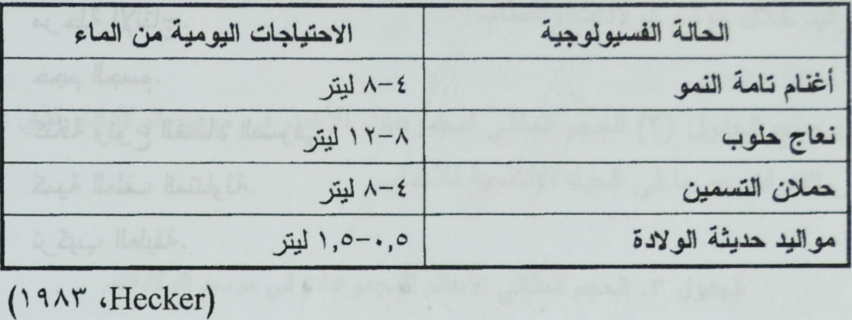 الحالة الفسيولوجية	الاحتياجات اليومية من الماء
أغنام تامة النمو	٤-٨ ليتر
نعاج حلوب	٨-١٢ ليتر
حملان التسمين	٤-٨ ليتر
مواليد حديثة الولادة	٠,٥-١,٥ ليتر
(Hecker، ١٩٨٣)